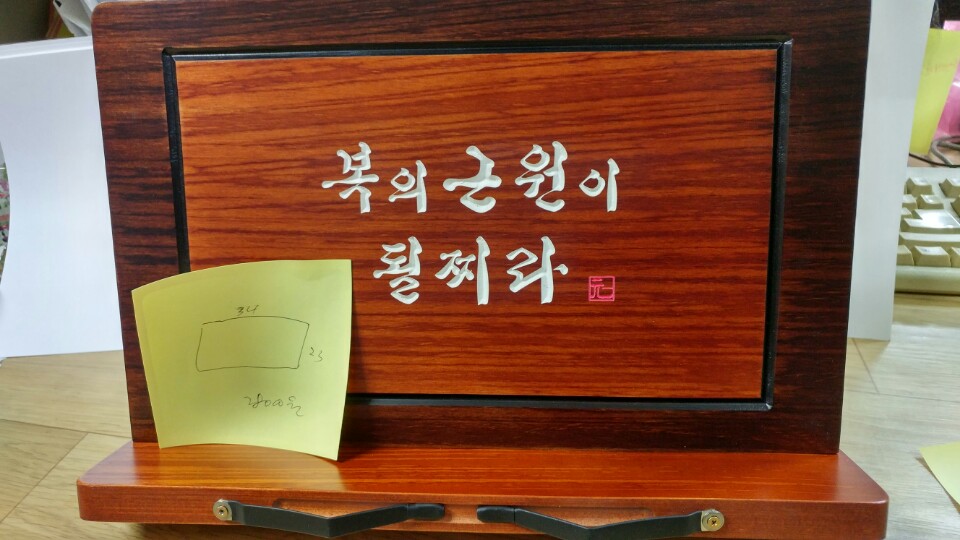 복의 근원이
될찌라
元
34
23
28000원